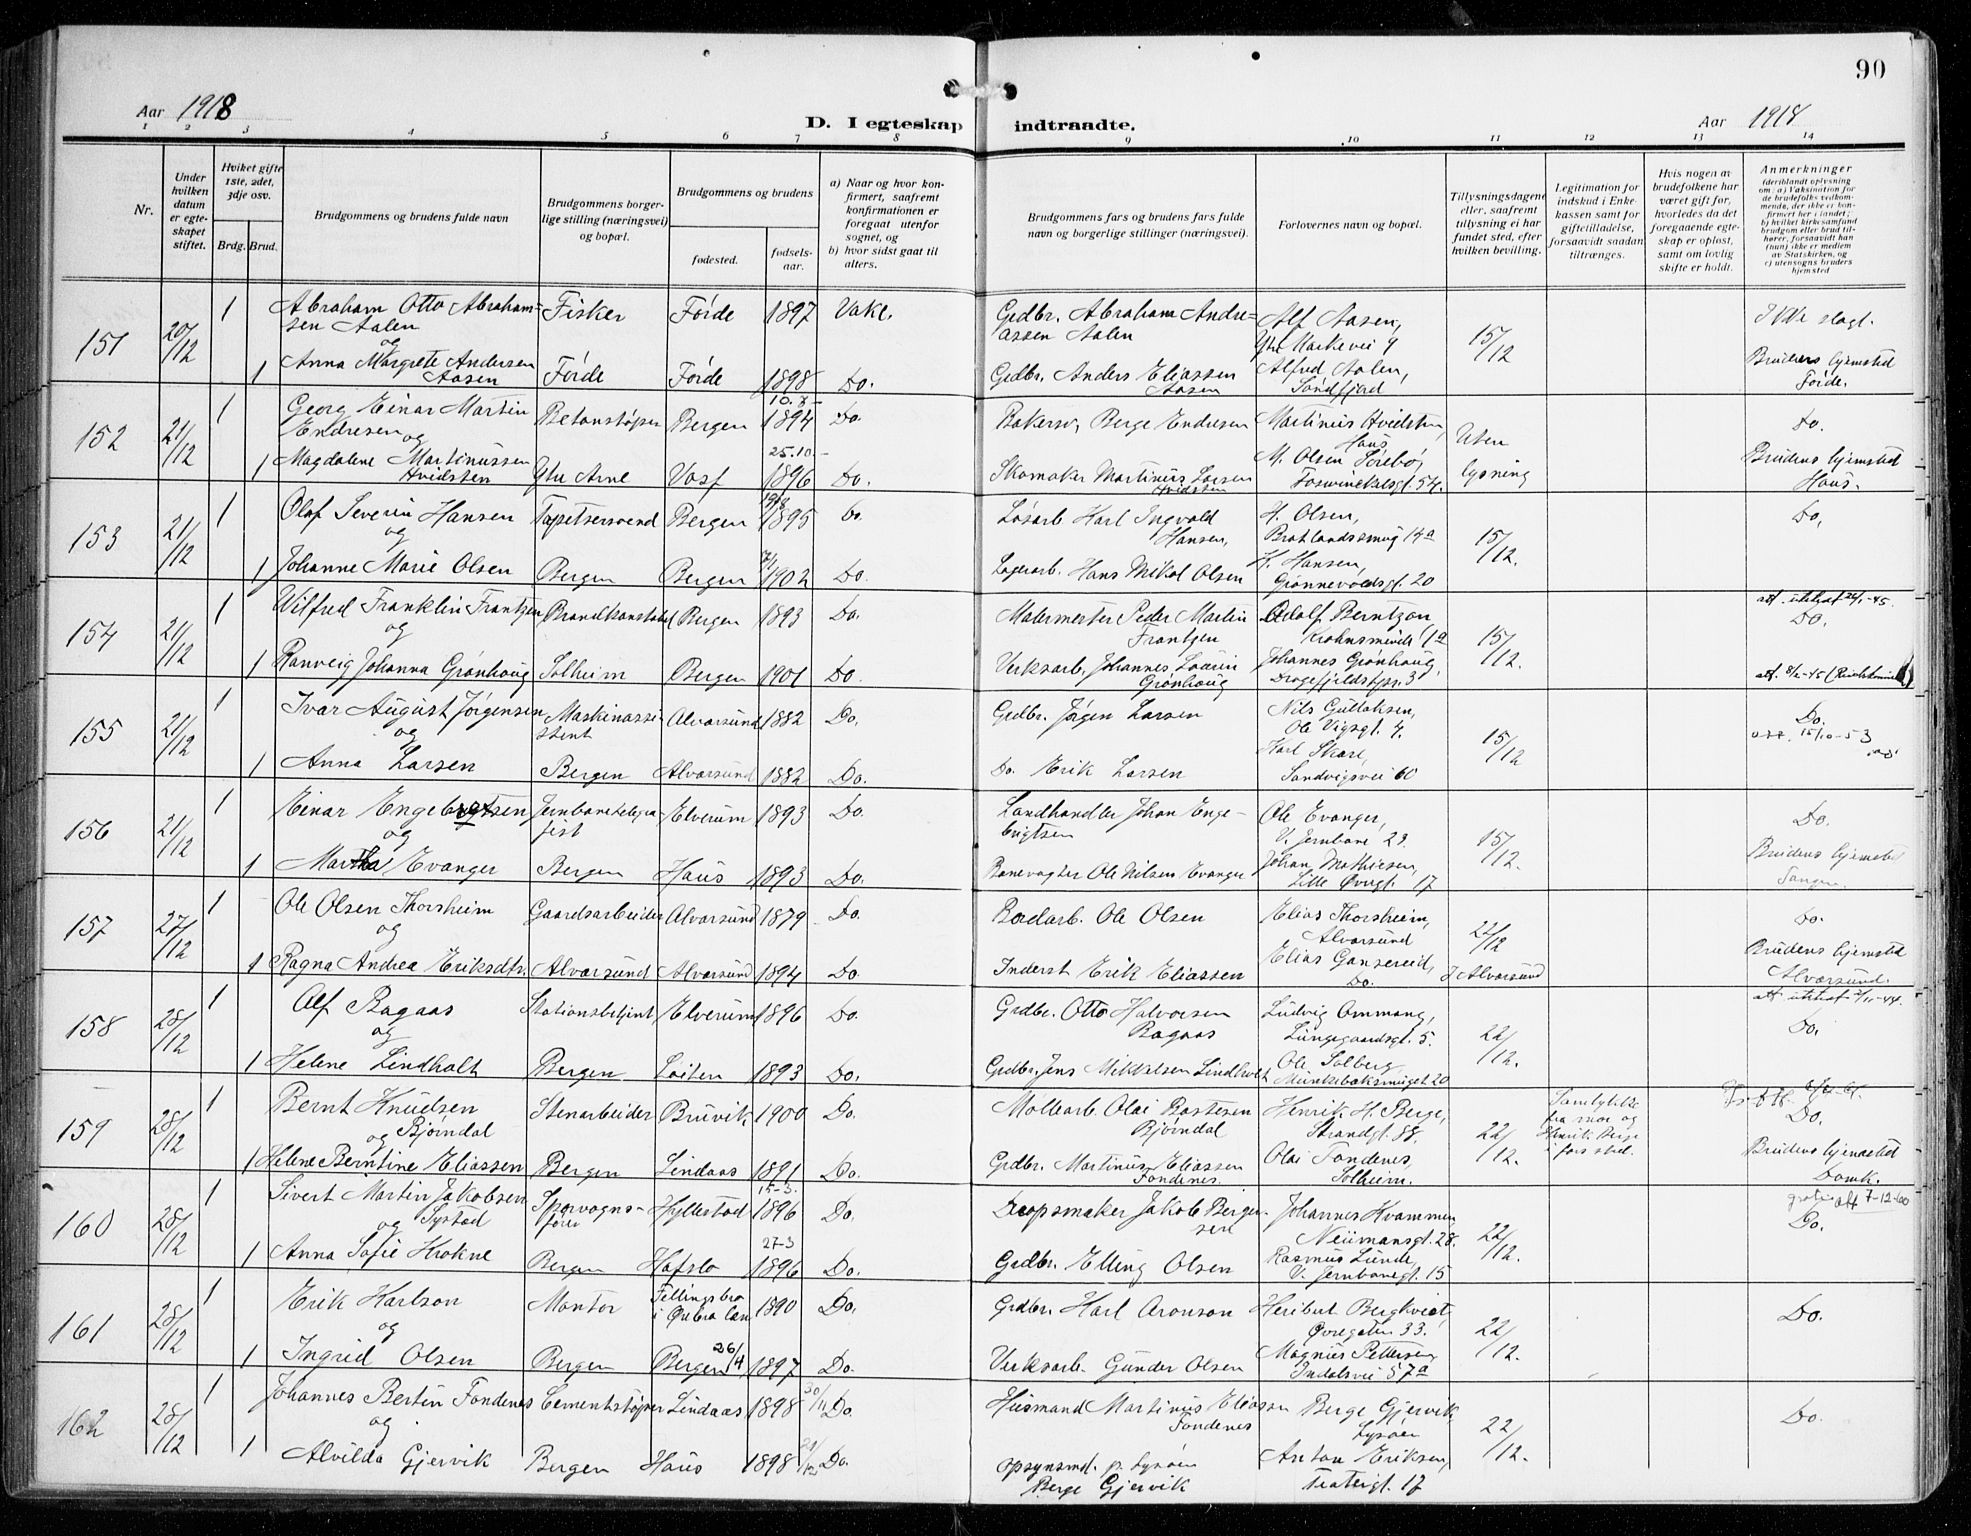 90
Aar 1918
D. I egteskap indtraadte.
Aar 1918
1 2 3 4 5 6 7 8 9 10 11 12 13 14
Nr.
Under hvilken datum er egteskapet stiftet.
Hvilket gifte 1ste, 2det, 3dje osv.
Brdg. Brud.
Brudgommens og brudens fulde navn
Brudgommens borgerlige stilling (næringsvei) og bopæl.
Brudgommens og brudens
fødested.
fødselsaar.
a) Naar og hvor konfirmert, saafremt konfirmationen er foregaat utenfor sognet, og
b) hvor sidst gaat til alters.
Brudgommens fars og brudens fars fulde navn og borgerlige stillinger (næringsvei).
Forlovernes navn og bopæl.
Tillysningsdagene eller, saafremt tillysning ei har fundet sted, efter hvilken bevilling.
Legitimation for indskud i Enkekassen samt for giftetilladelse, forsaavidt saadan tiltrænges.
Hvis nogen av brudefolkene har været gift før, hvorledes da det foregaaende egteskap er opløst, samt om lovlig skifte er holdt.
Anmerkninger (deriblandt oplysning om: a) Vaksination for de brudefolks vedkommende, der ikke er konfirmert her i landet; b) hvilket kirkesamfund brudgom eller brud tilhører, forsaavidt han (hun) ikke er medlem av Statskirken, og c) utensogns bruders hjemsted
151 20/12 1 Abraham Otto Abrahamsen Aalen Fisker Førde 1897 Vakc. Grdbr. Abraham Andreassen Aalen Alf Aasen, Ytre Markevei 9 15/12 Ikke slagt.
og
1 Anna Margrete Andersen Aasen Førde Førde 1898 Do. Grdbr. Anders Eliassen Aasen Alfred Aalen, Søndfjord Brudens hjemsted Førde.
152 21/12 1 Georg Einar Martin Endresen Betonstøper Bergen 10.8- 1894 Do Bakersv. Berge Endresen Martinus Hvidsten, Haus Uten lysning Do.
og
1 Magdalene Martinussen Hvidsten Ytre Arne Voss 25.10- 1896 Do. Skomaker Martinus Larsen Hvidsten M. Olsen Sørebø, Foswinckelsgt. 54. Brudens hjemsted Haus.
153 21/12 1 Olaf Severin Hansen Tapetsersvend Bergen 1895 Do. Løsarb Karl Ingvald Hansen, H. Olsen, Bratlandssmug 14a 15/12. Do,
og
1 Johanne Marie Olsen Bergen Bergen 1902 Do. Lagerarb. Hans Mikal Olsen H. Hansen, Grønnevoldsgt. 20
154 21/12 1 Wilfred Franklin Frantzen Brandkonstabel Bergen 1893 Do. Malermester Peder Martin Frantzen Adolf Berntzon Krohnsminde 1a 15/12. Do.
og
1 Ranveig Johanna Grønhaug Solheim Bergen 1901 Do. Verksarb. Johannes Laurin Grønhaug Johannes Grønhaug, Dragefjeldstpr. 3
155 21/12 1 Ivar August Jørgensen Maskinassistent Alversund 1882 Do. Grdbr. Jørgen Larsen Nils Gullaksen, Ole Vigsgt. 4. 15/12 Do. 15/10-53
og
1 Anna Larsen Bergen Alversund 1882 Do. Do. Erik Larsen Karl Skare, Sandvigsvei 60
156 21/12 1 Einar Engebretsen Jernbanetelegrafist Elverum 1893 Do Landhandler Johan Engebrigtsen Ole Evanger, V. Jernbane 23. 15/12. Do.
og
1 Martha Evanger Bergen Haus 1893 Do. Banevogter Ole Nilsen Evanger Johan Mathiesen, Lille Øvregt. 17 Brudens hjemsted
157 27/12 1 Ole Olsen Thorsheim Gaardsarbeider Alversund 1879 Do. Bordarb. Ole Olsen Elias Thorsheim, Alversund 22/12 Do.
og
1 Ragna Andrea Eriksdtr. Alversund Alversund 1894 Do. Inderst Erik Eliassen Elias Gansereid, Do. I Alversund Brudens hjemsted Alversund.
158 28/12 1 Alf Bagaas Stationsbetjent Elverum 1896 Do. Grdbr. Otto Halvorsen Bagaas Ludvig Ommang, Lungegaardsgt. 5. 22/12. Do.
og
1 Helene Lindholt Bergen Løiten 1893 Do. Grdbr. Jens Mikkelsen Lindholt Ole Solberg Munkebeksmuget 20
159 28/12 1 Bernt Knudsen Bjørndal Stenarbeider Bruvik 1900 Do. Møllearb. Olai Bastesen Bjørndal Henrik H. Berge, Strandgt. 88. 22/12. Samtykke fra mor og Henrik Berge i fars sted. Do.
og
1 Helene Berntine Eliassen Bergen Lindaas 1891 Do. Grdbr. Martinus Eliassen Fondenes. Olai Fondenes, Solheim. Brudens hjemsted Domk.
160 28/12 1 Sivert Martin Jakobsen Systad Sporvognsfører Hyllestad 15-3. 1896 Do. Jakob Bergersen Johannes Kvammen, Neumansgt. 28. 22/12. 7-12-60 Do.
og
1 Anna Sofie Krokne Bergen Hafslo 27-3 1896 Do. Grdbr. Elling Olsen Rasmus Lunde, V. Jernbanegt. 15
161 28/12 1 Erik Karlson Montør Fellingsbro i Ørebro län 1890 Do. Grdbr. Karl Aronson Heribert Bergkvist, Øvregaten 33. 22/12. Do.
og
1 Ingrid Olsen Bergen Bergen 26/4 1897 Do. Verksarb. Gunder Olsen Magnus Pettersen, Indalsvei 57a
162 28/12 1 Johannes Bertin Fondenes Cementstøper Lindaas 1898 30/11 Do. Husmand Martinus Eliassen Fondenes Berge Gjervik, Lysøen 22/12. Do.
og
1 Alvilda Gjervik Bergen Haus 1898 Do. Opsynsmd. p. Lysøen Berge Gjervik Anton Eriksen, Teatergt. 17